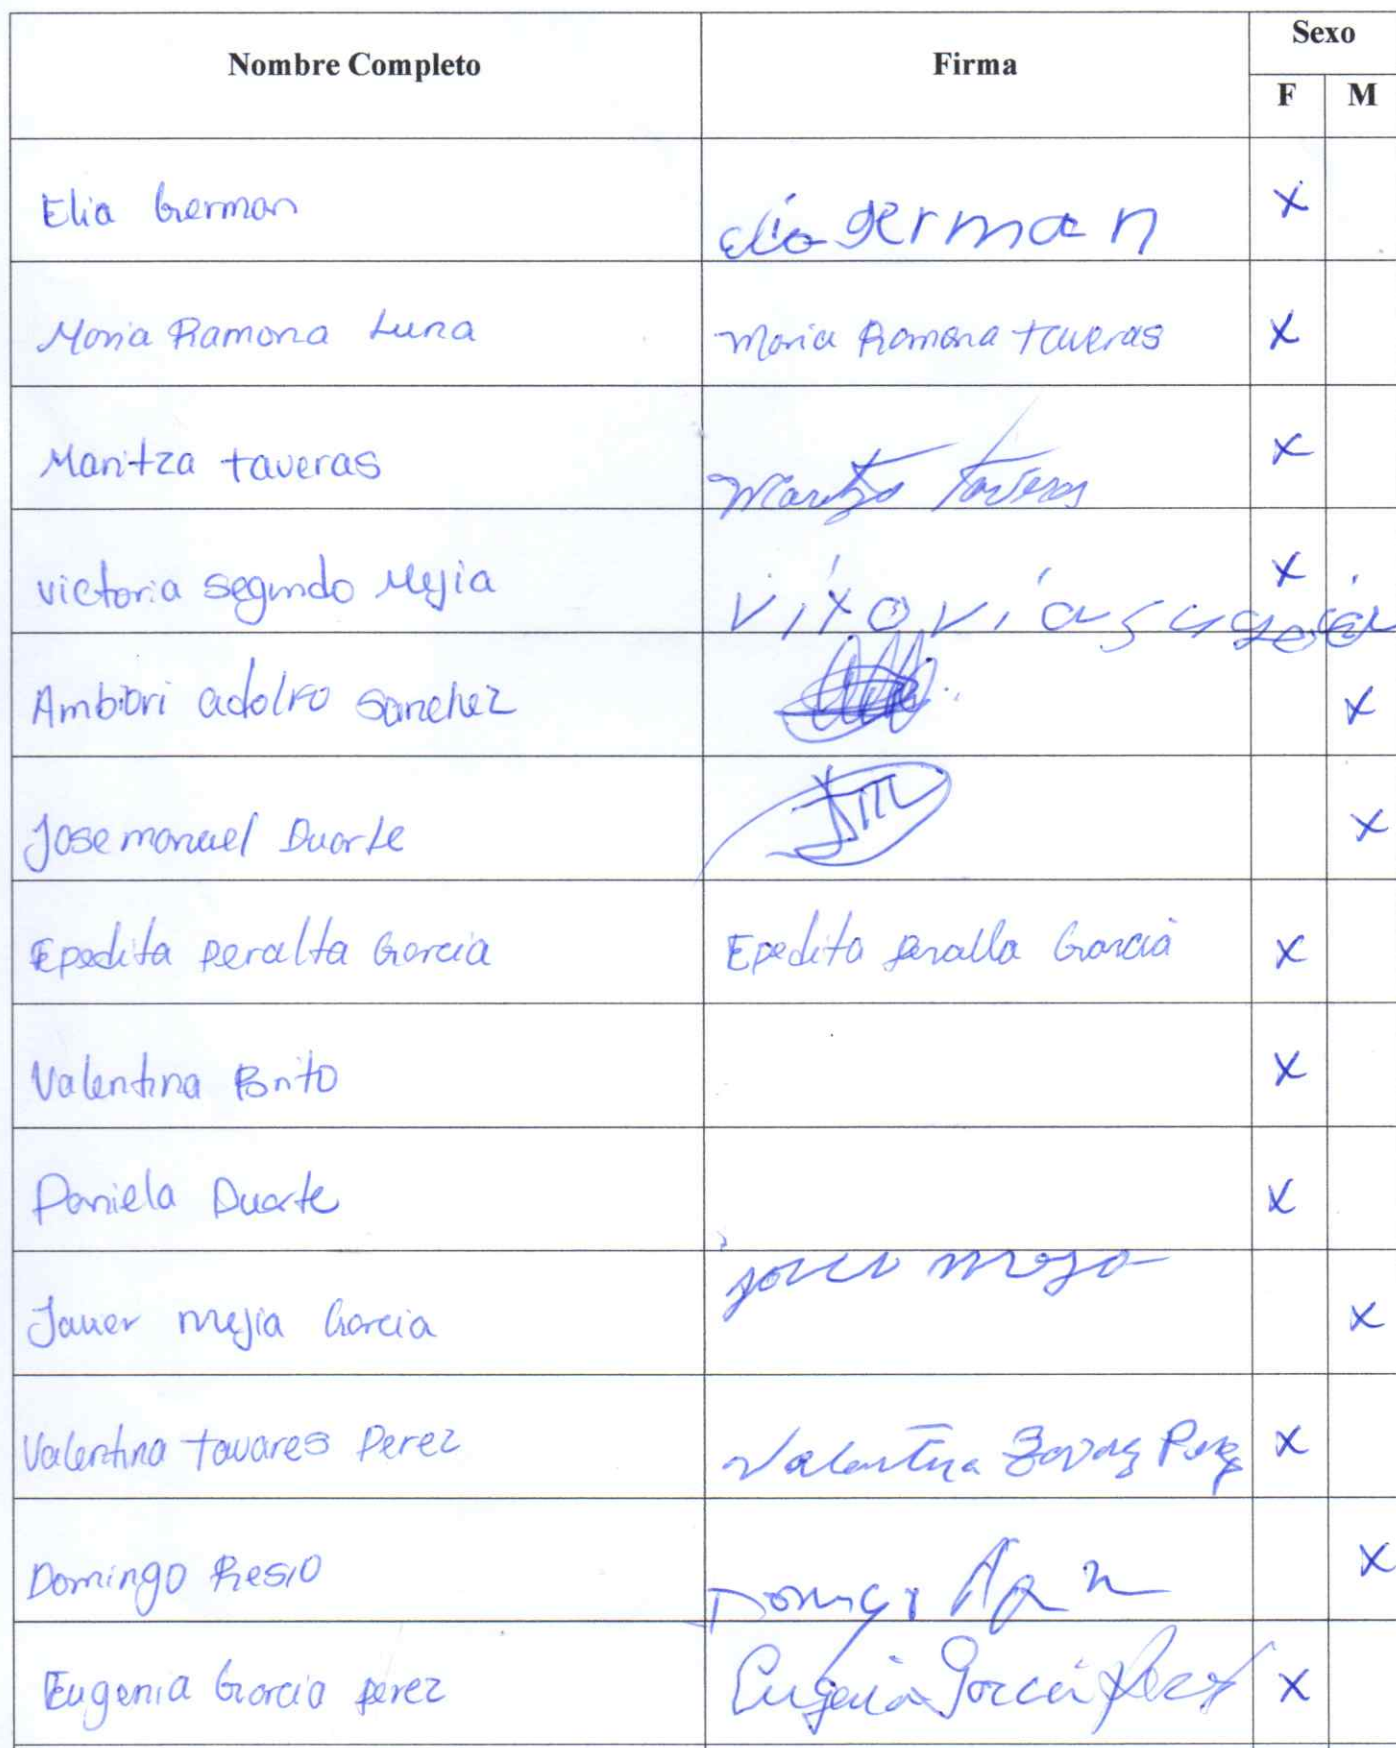 Nombre Completo Firma Sexo
F M
Elia German elia German X
Maria Ramona Luna Maria Ramona taveras X
Maritza taveras Maritza Taveras X
victoria segundo Mejia X
Ambiori adolfo sanchez X
Jose manuel Duarte JM X
Epedita peralta Garcia Epedita peralta Garcia X
Valentina Brito X
Daniela Duarte X
Javier mejia Garcia X
Valentina tavares Perez Valentina X
Domingo Resio X
Eugenia Garcia perez Eugenia Garcia Perez X